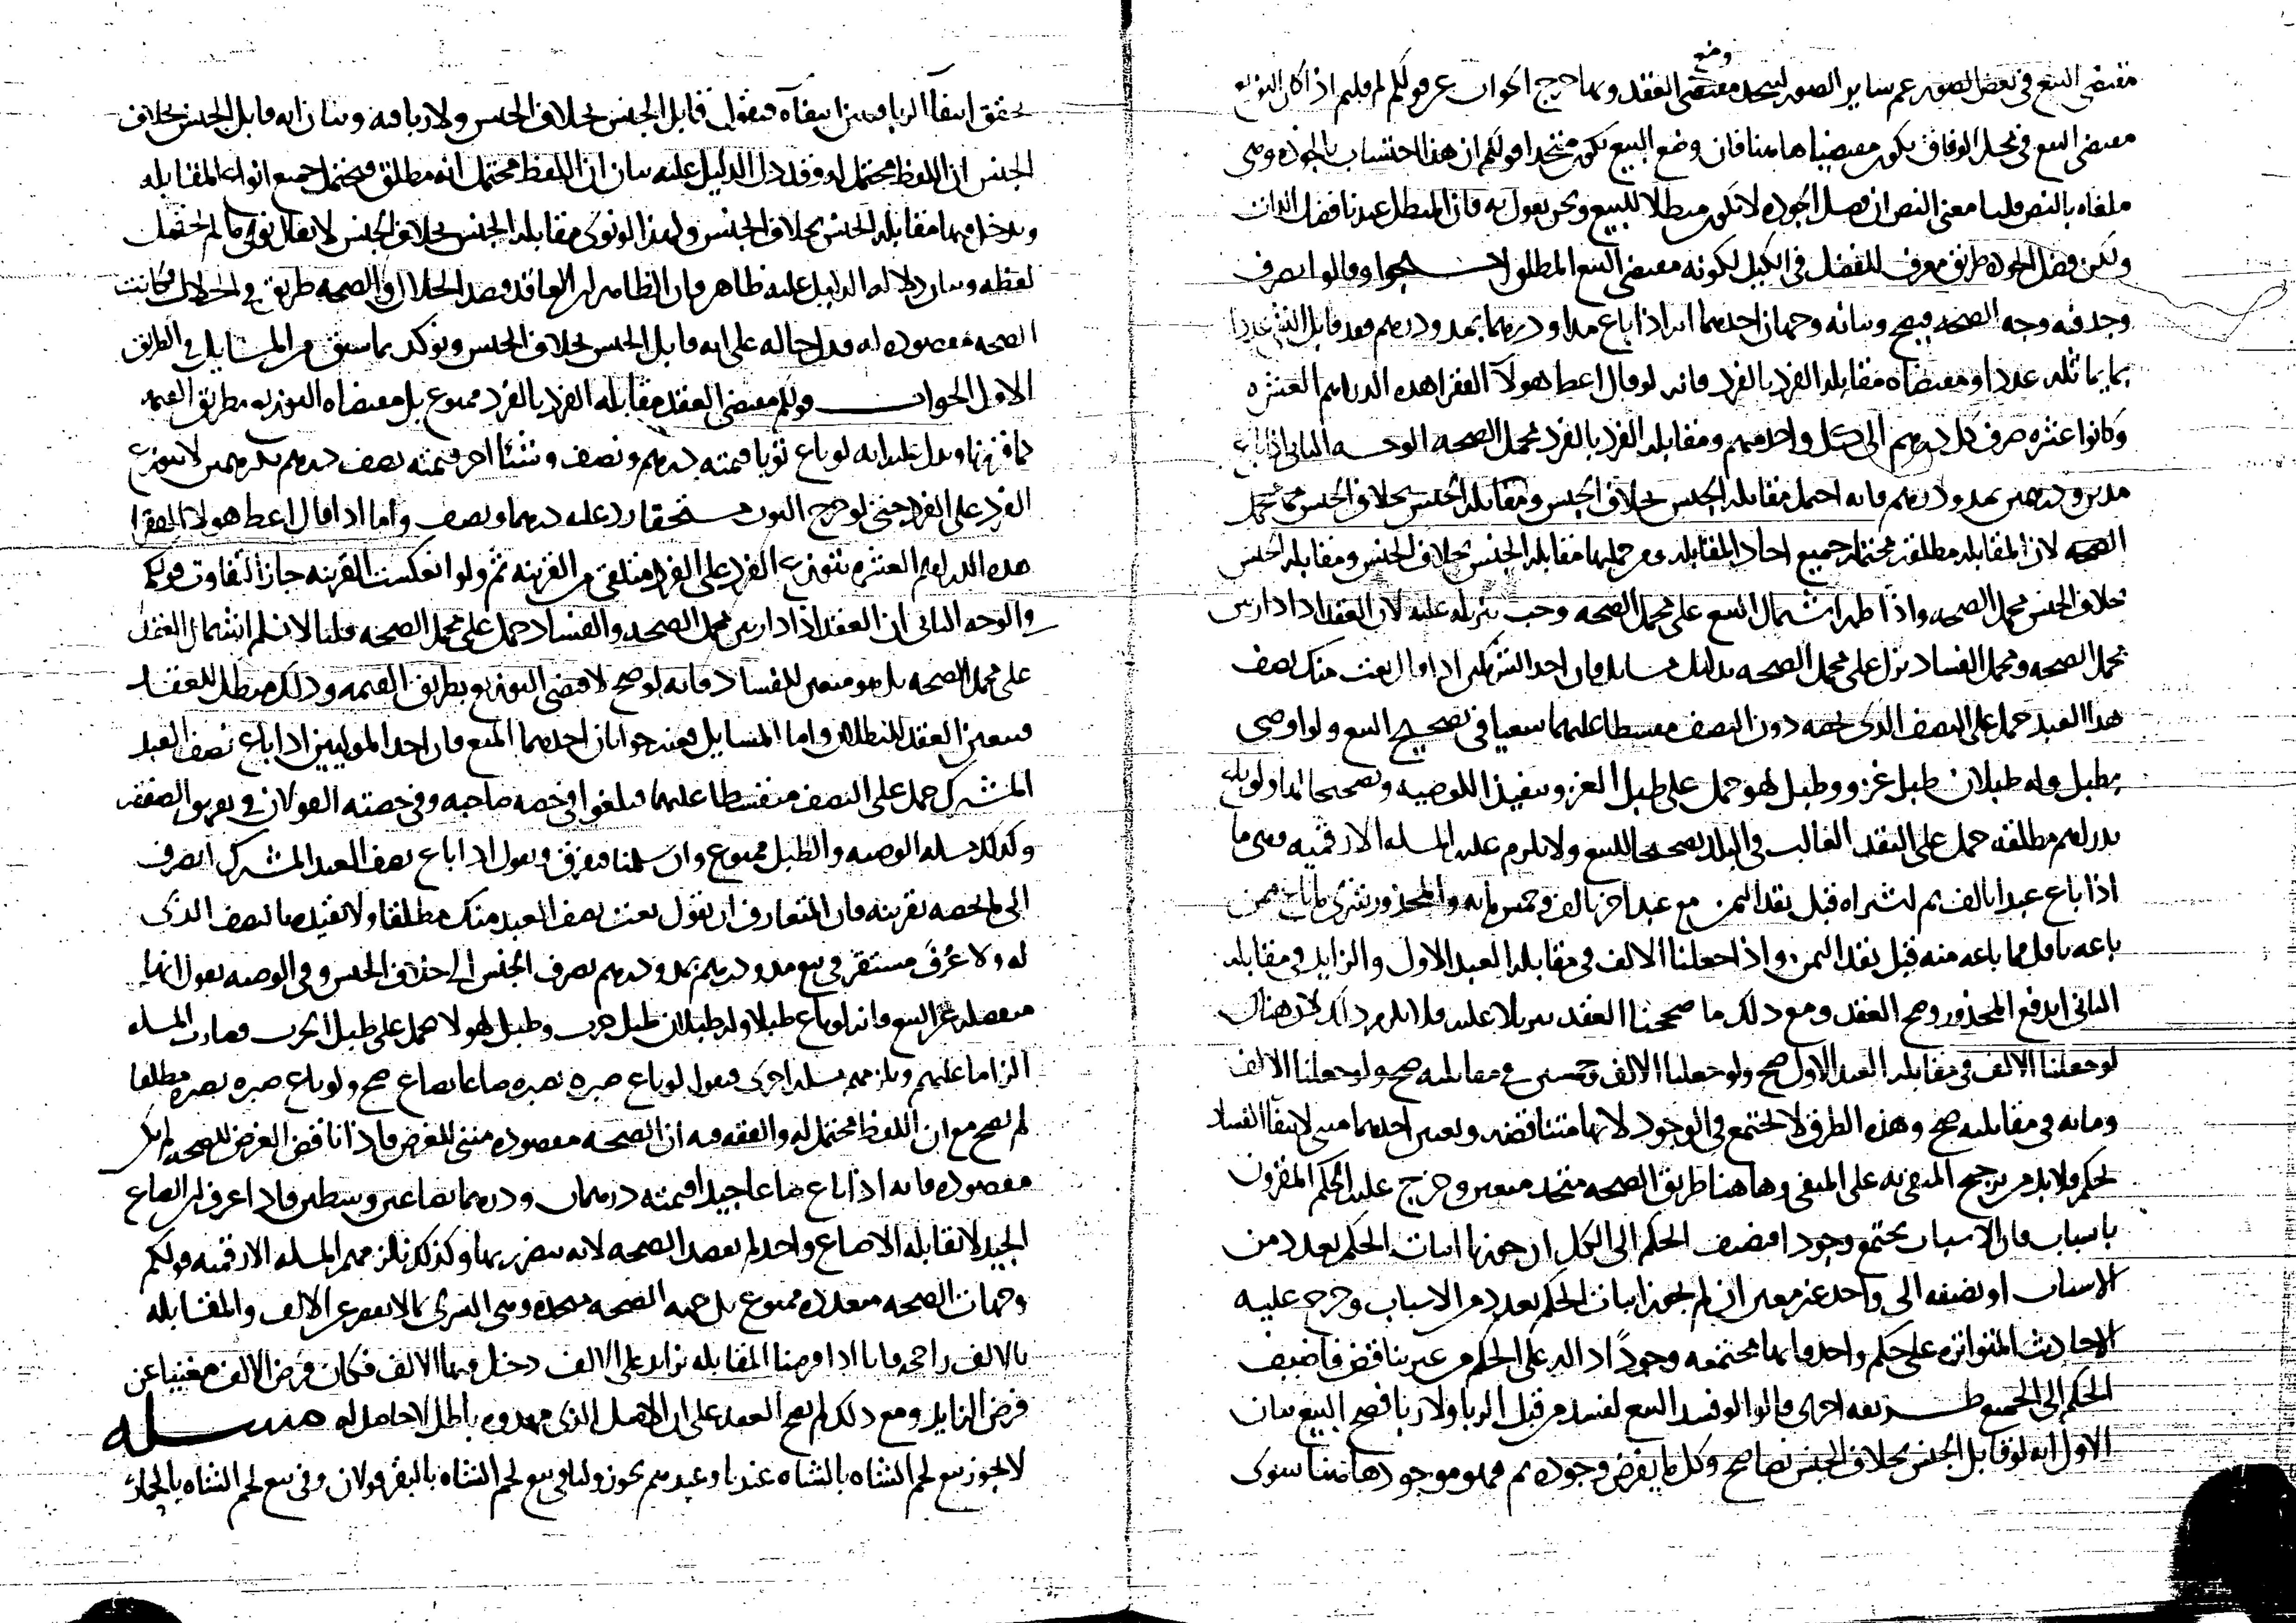 وضع
مقتضى البيع في بعض الصور عم ساير الصور ليتحد مقتضى العقد وبها خرج الجواب عن قولكم لم قلتم اذا كان التوزيع
مقتضى البيع في محل الوفاق يكون مقتضيا هاهنا فان وضع البيع يكون متحدا قولكم ان هذا احتساب بالجودة وهي
ملغاه بالنص قلنا معنى النص ان فضل الجوده لا تكون مبطلا للبيع ونحن نقول به فان المبطل عندنا فضل الذات
ولكن فضل الجوده طريق معرف للفضل في الكيل لكونه مقتضى البيع المطلق احتجوا وقالوا تصرف
وجد فيه وجه الصحه فيصح وبيانه وجهان احدهما انه اذا باع مدا ودرهما بمد ودرهم فقد قابل الشي عددا
بما يماثله عددا ومقتضاه مقابله الفرد بالفرد فانه لو قال اعط هولآ الفقرا هذه الدراهم العشره
وكانوا عشره صرف كل درهم الى كل واحد منهم ومقابله الفرد بالفرد محمل الصحه الوجه الثاني اذا باع
مدين ودرهمين بمد ودرهم فانه احتمل مقابله الجنس بخلاف الجنس ومقابله الجنس بخلاف الجنس مما محمل
الصحه لان المقابله مطلقه محتمله جميع احاد المقابله ومن جملتها مقابله الجنس بخلاف الجنس ومقابله الجنس
بخلاف الجنس محمل الصحه واذا ظهر اشتمال البيع على محمل الصحه وجب تنزيله عليه لان العقد اذا دار بين
محمل الصحه ومحمل الفساد نزل على محمل الصحه بدليل مسايل فان احد الشريكين اذا قال بعت منك نصف
هذا العبد حمل على النصف الذي يخصه دون النصف مقسطا عليهما سعيا في تصحيح البيع ولو اوصى
بطبل وله طبلان طبل غزو وطبل لهو حمل على طبل الغزو تنفيذا للوصيه وتصحيحا لها ولو باع
بدراهم مطلقه حمل على النقد الغالب في البلد تصحيحا للبيع ولا يلزم عليه المسله الارقميه وهي ما
اذا باع عبدا بالف ثم اشتراه قبل نقد الثمن مع عبد اخر بالف وخمس مايه والمحذور شرى ما باع ممن
باعه باقل مما باعه منه قبل نقد الثمن واذا جعلنا الالف في مقابله العبد الاول والزايد في مقابله
الثاني اندفع المحذور وصح العقد ومع ذلك ما صححنا العقد تنزيلا عليه فلا يلزم ذلك لان هناك
لو جعلنا الالف في مقابله العبد الاول صح ولو جعلنا الالف وخمسين في مقابلته صح ولو جعلنا الالف
ومايه في مقابلته صح وهذه الطرق لا تجتمع في الوجود لانها متناقضه وتعيين احدهما مبني لانتفآ الفساد
تحكم ولا بد من ترجيح المبقي به على المنفي وهاهنا طريق الصحه متحد متعين وخرج عليه الحكم المقرون
باسباب فان الاسباب تجتمع وجودا فنضيف الحكم الى الكل ان جوزنا اثبات الحكم بعدد من
الاسباب او نضيفه الى واحد غير معين ان لم نجوز اثبات الحكم بعدد من الاسباب وخرج عليه
الاحاديث المتواتره على حكم واحد فانها مجتمعه وجودا اذ الدال على الحكم من غير تناقض فاضيف
الحكم الى الجميع طريقه اخرى قالوا لو فسد البيع لفسد من قبل الربا ولا ربا فصح البيع بيان
الاول انه لو قابل الجنس بخلاف الجنس نصا صح وكل ما يفرض وجوده ثم فهو موجود هاهنا سوى
تحقق انتفآ الربا فبين انتفآه فنقول قابل الجنس بخلاف الجنس ولا ربا فيه وبيان انه قابل الجنس بخلاف
الجنس ان اللفظ محتمل له وقد دل الدليل عليه بيان ان اللفظ محتمل انه مطلق فيحتمل جميع انواع المقابله
ويدخل فيها مقابله الجنس بخلاف الجنس ولهذا لو نوى مقابله الجنس بخلاف الجنس لا يقال نوى ما لم يحتمل
لفظه وبيان دلاله الدليل عليه ظاهر فان الظاهر ان العاقد قصد الحلال والصحه طريق في الحلال فكانت
الصحه مقصوده له فدل حاله على انه قابل الجنس بخلاف الجنس ونوكد بما سبق من المسايل في الطريق
الاول الجواب قولكم مقتضى العقد مقابله الفرد بالفرد ممنوع بل مقتضاه التوزيع بطريق القيمه
كما قررنا ويدل عليه انه لو باع ثوبا قيمته درهم ونصف وشيئا اخر قيمته نصف درهم بدرهمين لا يتوزع
الفرد على الفرد حتى لو خرج الثوب مستحقا رد عليه درهما ونصف واما اذا قال اعط هولا الفقرا
هذه الدراهم العشره بتوزيع الفرد على الفرد متلقى من القرينه ثم ولو انعكست القرينه جاز التفاوت قولكم
والوجه الثاني ان العقد اذا دار بين محمل الصحه والفساد حمل على محمل الصحه قلنا لا نسلم اشتمال العقد
على محمل الصحه بل هو متعين للفساد فانه لو صح لاقتضى التوزيع بطريق القيمه وذلك مبطل للعقد
فيتعين العقد للبطلان واما المسايل فعنه جوابان احدهما المنع فان احد الموليين اذا باع نصف العبد
المشترك حمل على النصف منقسطا عليهما فيلغوا في حصه صاحبه وفي حصته القولان في تفريق الصفقه
وكذلك مسله الوصيه والطبل ممنوع وان سلمنا فنفرق ونقول اذا باع نصف العبد المشترك انصرف
الى مالخصه بقرينه فان المتعارف ان يقول بعت نصف العبد منك مطلقا ولا تقيده بالنصف الذي
له ولا عرف مستقر في بيع مد ودرهم بمد ودرهم بصرف الجنس الى خلاف الجنس وفي الوصيه نقول انها
منفصله عن البيع فانه لو باع طبلا وله طبلان طبل حرب وطبل لهو لا يحمل على طبل الحرب فصارت المسله
الزاما عليهم ويلزمهم مسله اخرى فنقول لو باع صبره بصبره صاعا بصاع صح ولو باع صبره بصبره مطلقا
لم يصح مع ان اللفظ محتمل له والفقه فيه ان الصحه مقصوده متى للغرض فاذا ناقض الغرض للصحه لم تكن
مقصوده فانه اذا باع صاعا جيدا قيمته درهمان ودرهما بصاعين وسطين فاذا عرف ان الصاع
الجيد لا تقابله الا صاع واحد لم يقصد الصحه لانه يتضرر بها وكذلك نلزمهم المسله الارقميه قولكم
وجهات الصحه متعدده ممنوع بل جهه الصحه متحده وهي الشرى بما لا ينقص عن الالف والمقابله
بالالف راجحه فانا اذا فرضنا المقابله بزايد على الالف دخل فيها الالف فكان فرض الالف مغنيا عن
فرض الزايد ومع ذلك لم يصح العقد على ان الاصل الذي مهدوه باطل لا حاصل له مسله
لا يجوز بيع لحم الشاه بالشاه عندنا وعندهم يجوز ولنا في بيع لحم الشاه بالبقر قولان وفي بيع لحم الشاه بالحمار